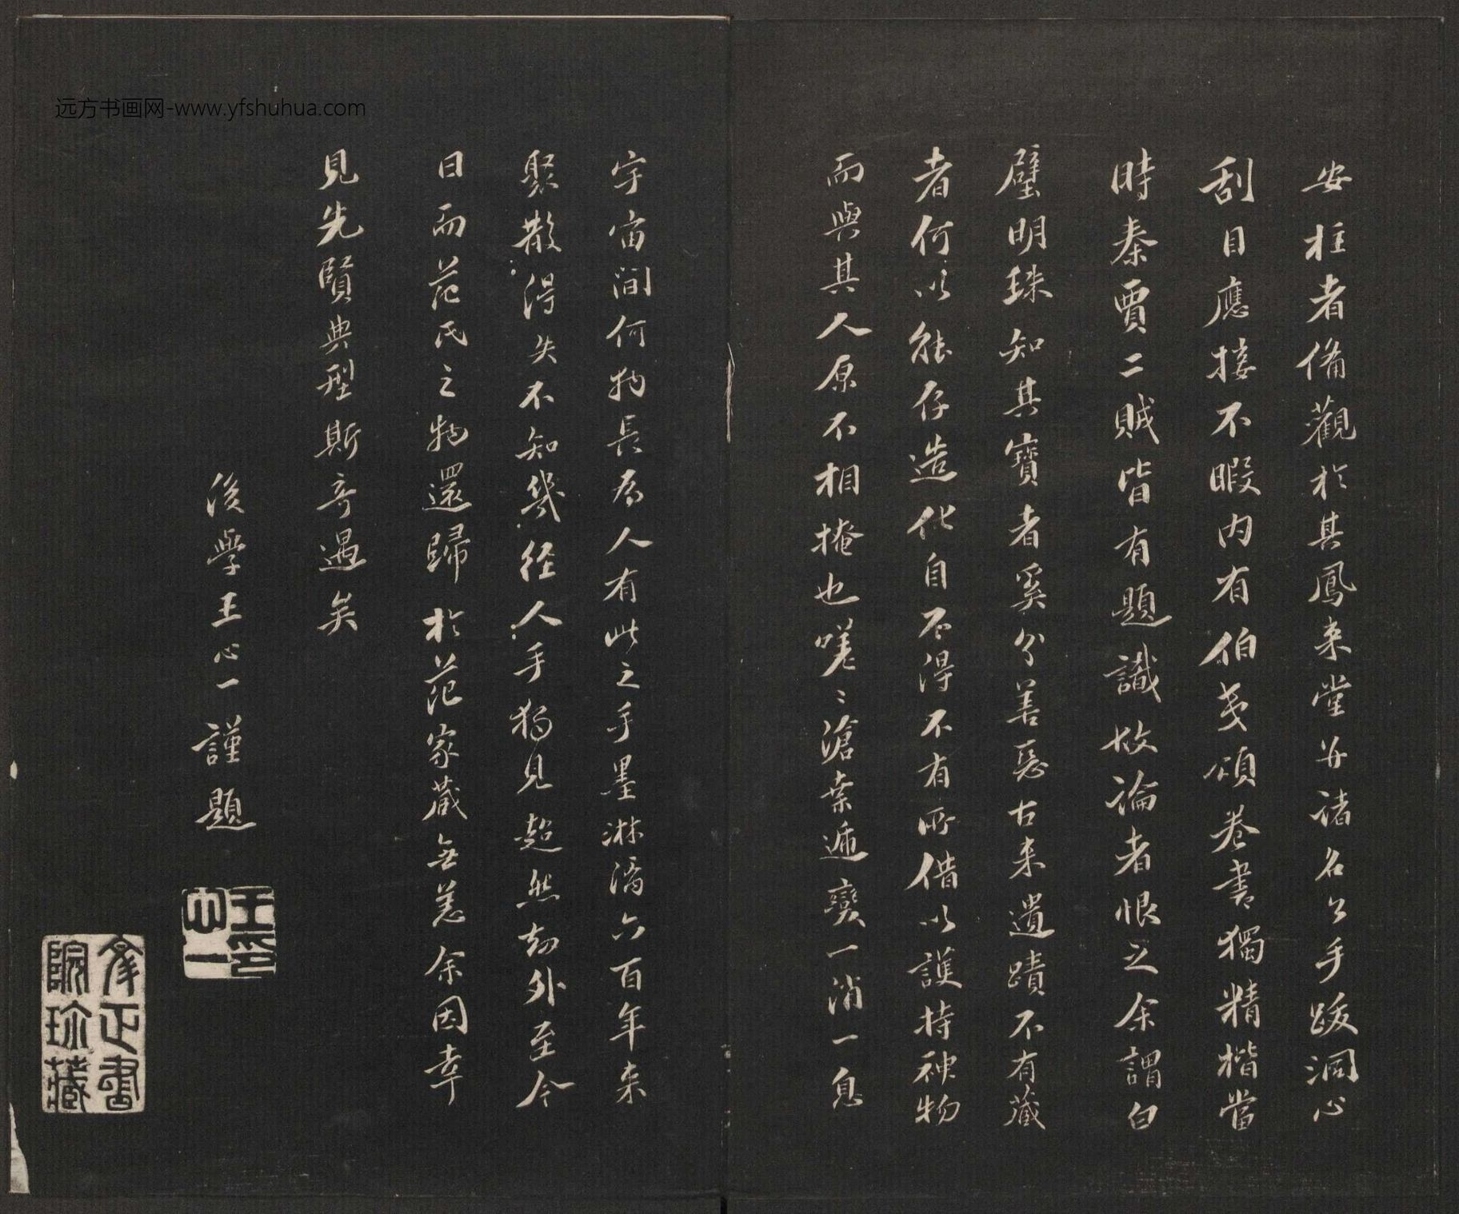 安柱者备觀於其鳳来堂并諸名公手跋洞心
刮目應接不暇内有伯夷頌卷書獨精楷當
時秦賈二賊皆有題識故論者恨之余謂白
璧明珠知其寶者奚分善惡古来遺蹟不有藏
者何以能存造化自不得不有所借以護持神物
而與其人原不相掩也嗟〻滄桒遞變一消一息
宇宙間何物長為人有此之手墨淋漓六百年来
聚散得失不知幾經人手獨見超然劫外至今
日而范氏之物還歸於范家藏無恙余因幸
見先賢典型斯奇遇矣
後學王心一謹題
王心一印
文正書院珍藏
远方书画网-www.yfshuhua.com